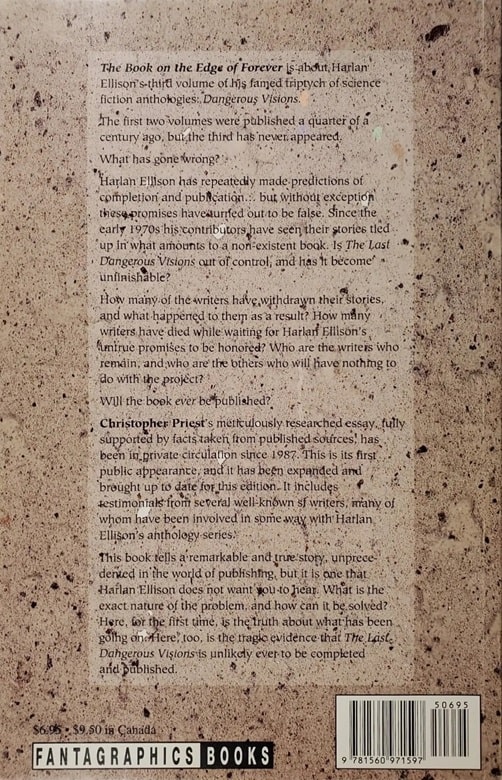 The Book on the Edge of Forever is about Harlan
Ellison's third volume of his famed triptych of science
fiction anthologies: Dangerous Visions.
The first two volumes were published a quarter of a
century ago, but the third has never appeared.
What has gone wrong?
Harlan Ellison has repeatedly made predictions of
completion and publication... but without exception
these promises have turned out to be false. Since the
early 1970s his contributors have seen their stories tied
up in what amounts to a non-existent book. Is The Last
Dangerous Visions out of control, and has it become
unfinishable?
How many of the writers have withdrawn their stories,
and what happened to them as a result? How many
writers have died while waiting for Harlan Ellison's
untrue promises to be honored? Who are the writers who
remain, and who are the others who will have nothing to
do with the project?
Will the book ever be published?
Christopher Priest's meticulously researched essay, fully
supported by facts taken from published sources, has
been in private circulation since 1987. This is its first
public appearance, and it has been expanded and
brought up to date for this edition. It includes
testimonials from several well-known sf writers, many of
whom have been involved in some way with Harlan
Ellison's anthology series.
This book tells a remarkable and true story, unprece-
dented in the world of publishing, but it is one that
Harlan Ellison does not want you to hear. What is the
exact nature of the problem, and how can it be solved?
Here, for the first time, is the truth about what has been
going on. Here, too, is the tragic evidence that The Last
Dangerous Visions is unlikely ever to be completed
and published.
50695
$6.95 • $9.50 in Canada
FANTAGRAPHICS BOOKS
9 781560 971597